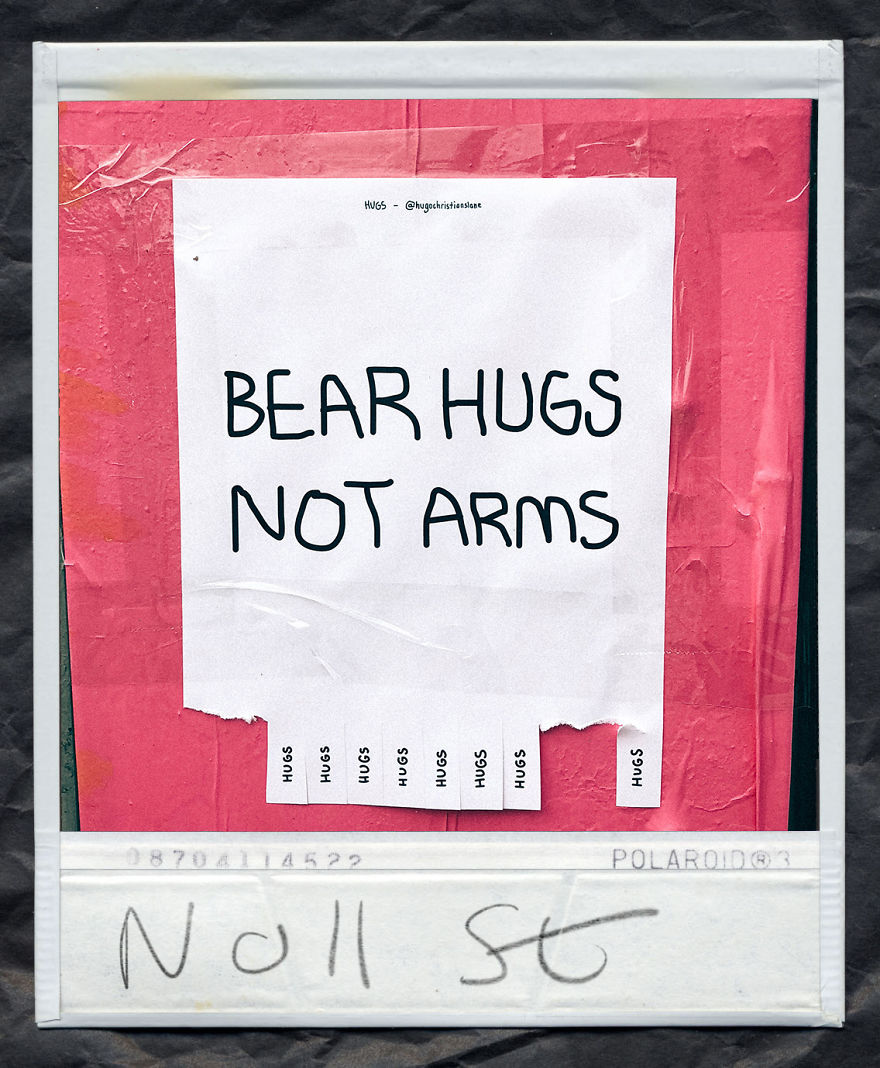 HUGS - @hugochristianslane
BEAR HUGS
NOT ARMS
HUGS
HUGS
HUGS
HUGS
HUGS
HUGS
HUGS
HUGS
08704114522 POLAROID®3
Noll St